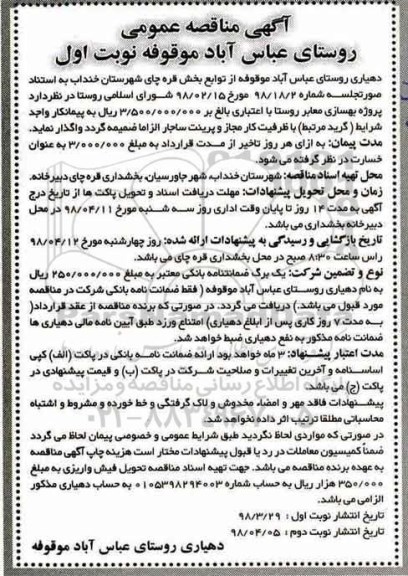 آگهی مناقصه عمومی
روستای عباس آباد موقوفه نوبت اول
دهیاری روستای عباس آباد موقوفه از توابع بخش قره چای شهرستان خنداب به استناد
صورتجلسه شماره ۹۸/۱۸/۲ مورخ ۹۸/۰۲/۱۵ شورای اسلامی روستا در نظر دارد
پروژه بهسازی معابر روستا با اعتباری بالغ بر ۳/۵۰۰/۰۰۰/۰۰۰ ریال به پیمانکار واجد
شرایط ( گرید مرتبط) با ظرفیت کار مجاز و پرینت ساجار الزاما ضمیمه گردد واگذار نماید.
مدت پیمان: به ازای هر روز تاخیر از مدت قرارداد به مبلغ ۳/۰۰۰/۰۰۰ به عنوان
خسارت در نظر گرفته می شود.
محل تهیه اسناد مناقصه: شهرستان خنداب، شهر جاورسیان، بخشداری قره چای دبیرخانه.
زمان و محل تحویل پیشنهادات: مهلت دریافت اسناد و تحویل پاکت ها از تاریخ درج
آگهی به مدت ۱۴ روز تا پایان وقت اداری روز سه شنبه مورخ ۹۸/۰۴/۱۱ در محل
دبیرخانه بخشداری می باشد.
تاریخ بازگشایی و رسیدگی به پیشنهادات ارائه شده: روز چهارشنبه مورخ ۹۸/۰۴/۱۲
راس ساعت ۸:۳۰ صبح در محل بخشداری قره چای می باشد.
نوع و تضمین شرکت: یک برگ ضمانتنامه بانکی معتبر به مبلغ ۲۵۰/۰۰۰/۰۰۰ ریال
به نام دهیاری روستای عباس آباد موقوفه ( فقط ضمانت نامه بانکی شرکت در مناقصه
مورد قبول می باشد.) دریافت می گردد. در صورتی که برنده مناقصه از عقد قرارداد(
به مدت ۷ روز کاری پس از ابلاغ دهیاری) امتناع ورزد طبق آیین نامه مالی دهیاری ها
ضمانت نامه مذکور به نفع دهیاری ضبط خواهد شد.
مدت اعتبار پیشنهاد: ۳ ماه خواهد بود ارائه ضمانت نامه بانکی در پاکت (الف) کپی
اساسنامه و آخرین تغییرات و صلاحیت شرکت در پاکت (ب) و قیمت پیشنهادی در
پاکت (ج) می باشد
پیشنهادات فاقد مهر و امضاء مخدوش و لاک گرفتگی و خط خورده و مشروط و اشتباه
محاسباتی مطلقا ترتیب اثر داده نخواهد شد.
در صورتی که مواردی لحاظ نگردید طبق شرایط عمومی و خصوصی پیمان لحاظ می گردد
ضمنا کمیسیون معاملات در رد یا قبول پیشنهادات مختار است هزینه چاپ آگهی مناقصه
به عهده برنده مناقصه می باشد. جهت تهیه اسناد مناقصه تحویل فیش واریزی به مبلغ
۳۵۰/۰۰۰ هزار ریال به حساب شماره ۰۱۰۵۳۹۸۲۹۴۰۰۳ به حساب دهیاری مذکور
الزامی می باشد.
تاریخ انتشار نوبت اول : ۹۸/۳/۲۹
تاریخ انتشار نوبت دوم : ۹۸/۰۴/۰۵
دهیاری روستای عباس آباد موقوفه